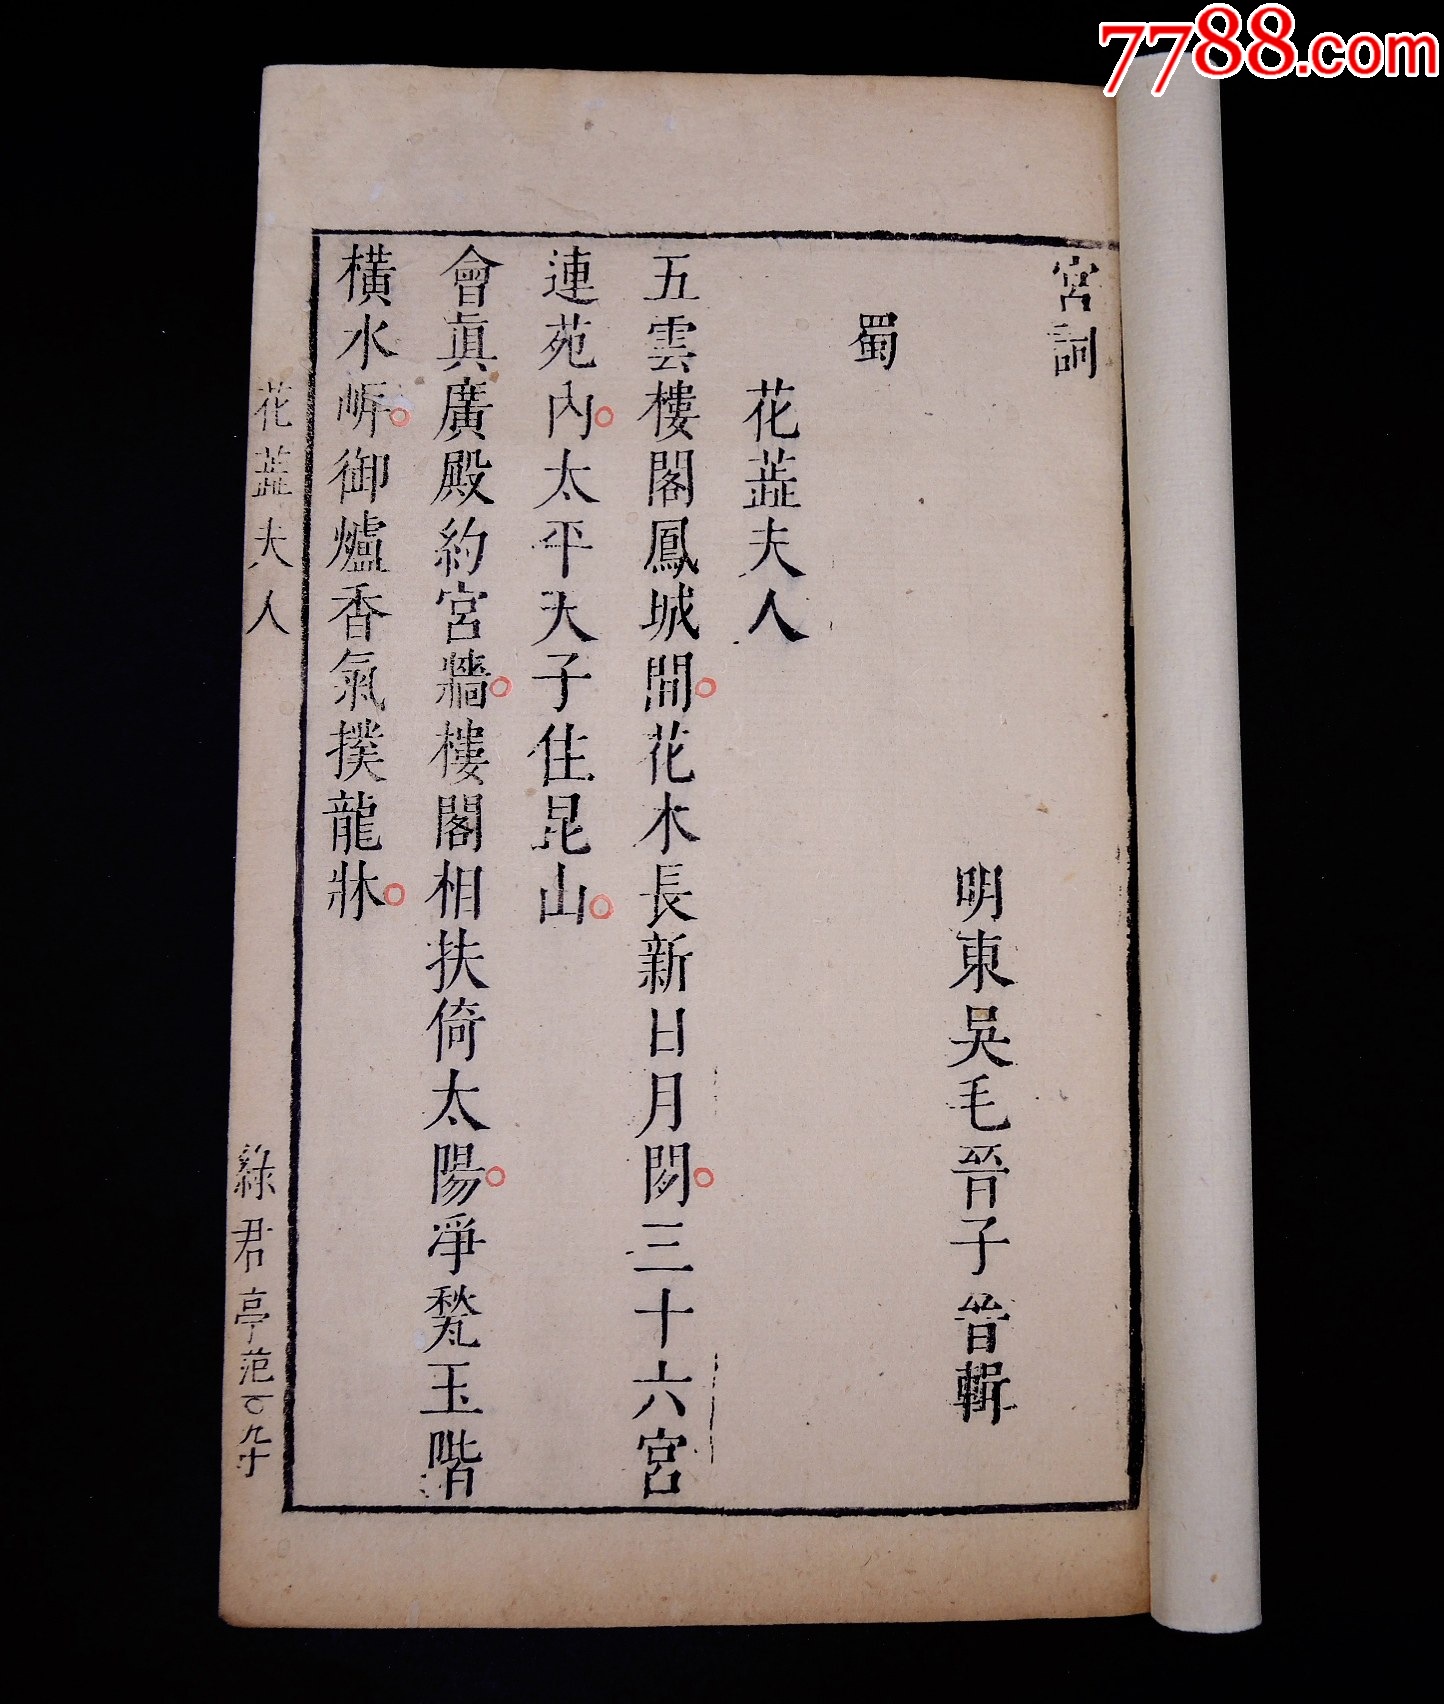 7788.com
宮詞
明東吳毛晉子晉輯
蜀
花蕋夫人
五雲樓閣鳳城間花木長新日月閒三十六宮
連苑內太平天子住昆山
會眞廣殿約宮牆樓閣相扶倚太陽淨甃玉階
橫水岍御爐香氣撲龍牀
花蕋夫人
綠君亭